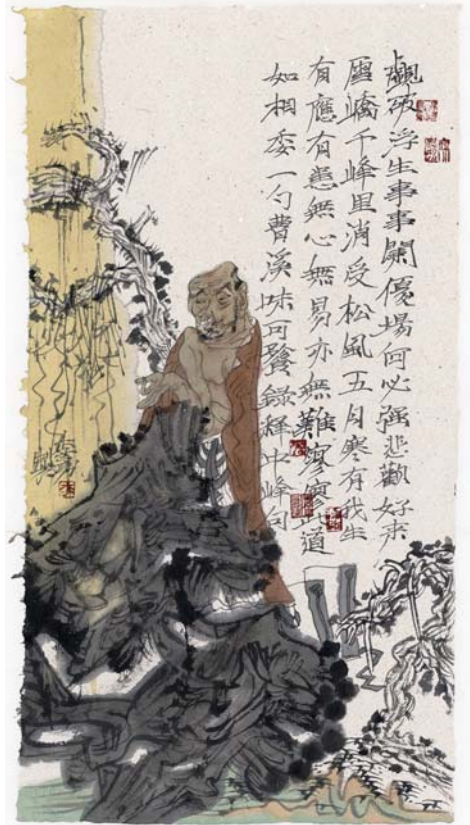 觑破浮生事事闌優場何必强悲觀好来
層嶠千峰里消受松風五月寒有我生
有應有患無心無易亦無難寥寥此道
如相委一勺曹溪味可餐錄釋中峰句